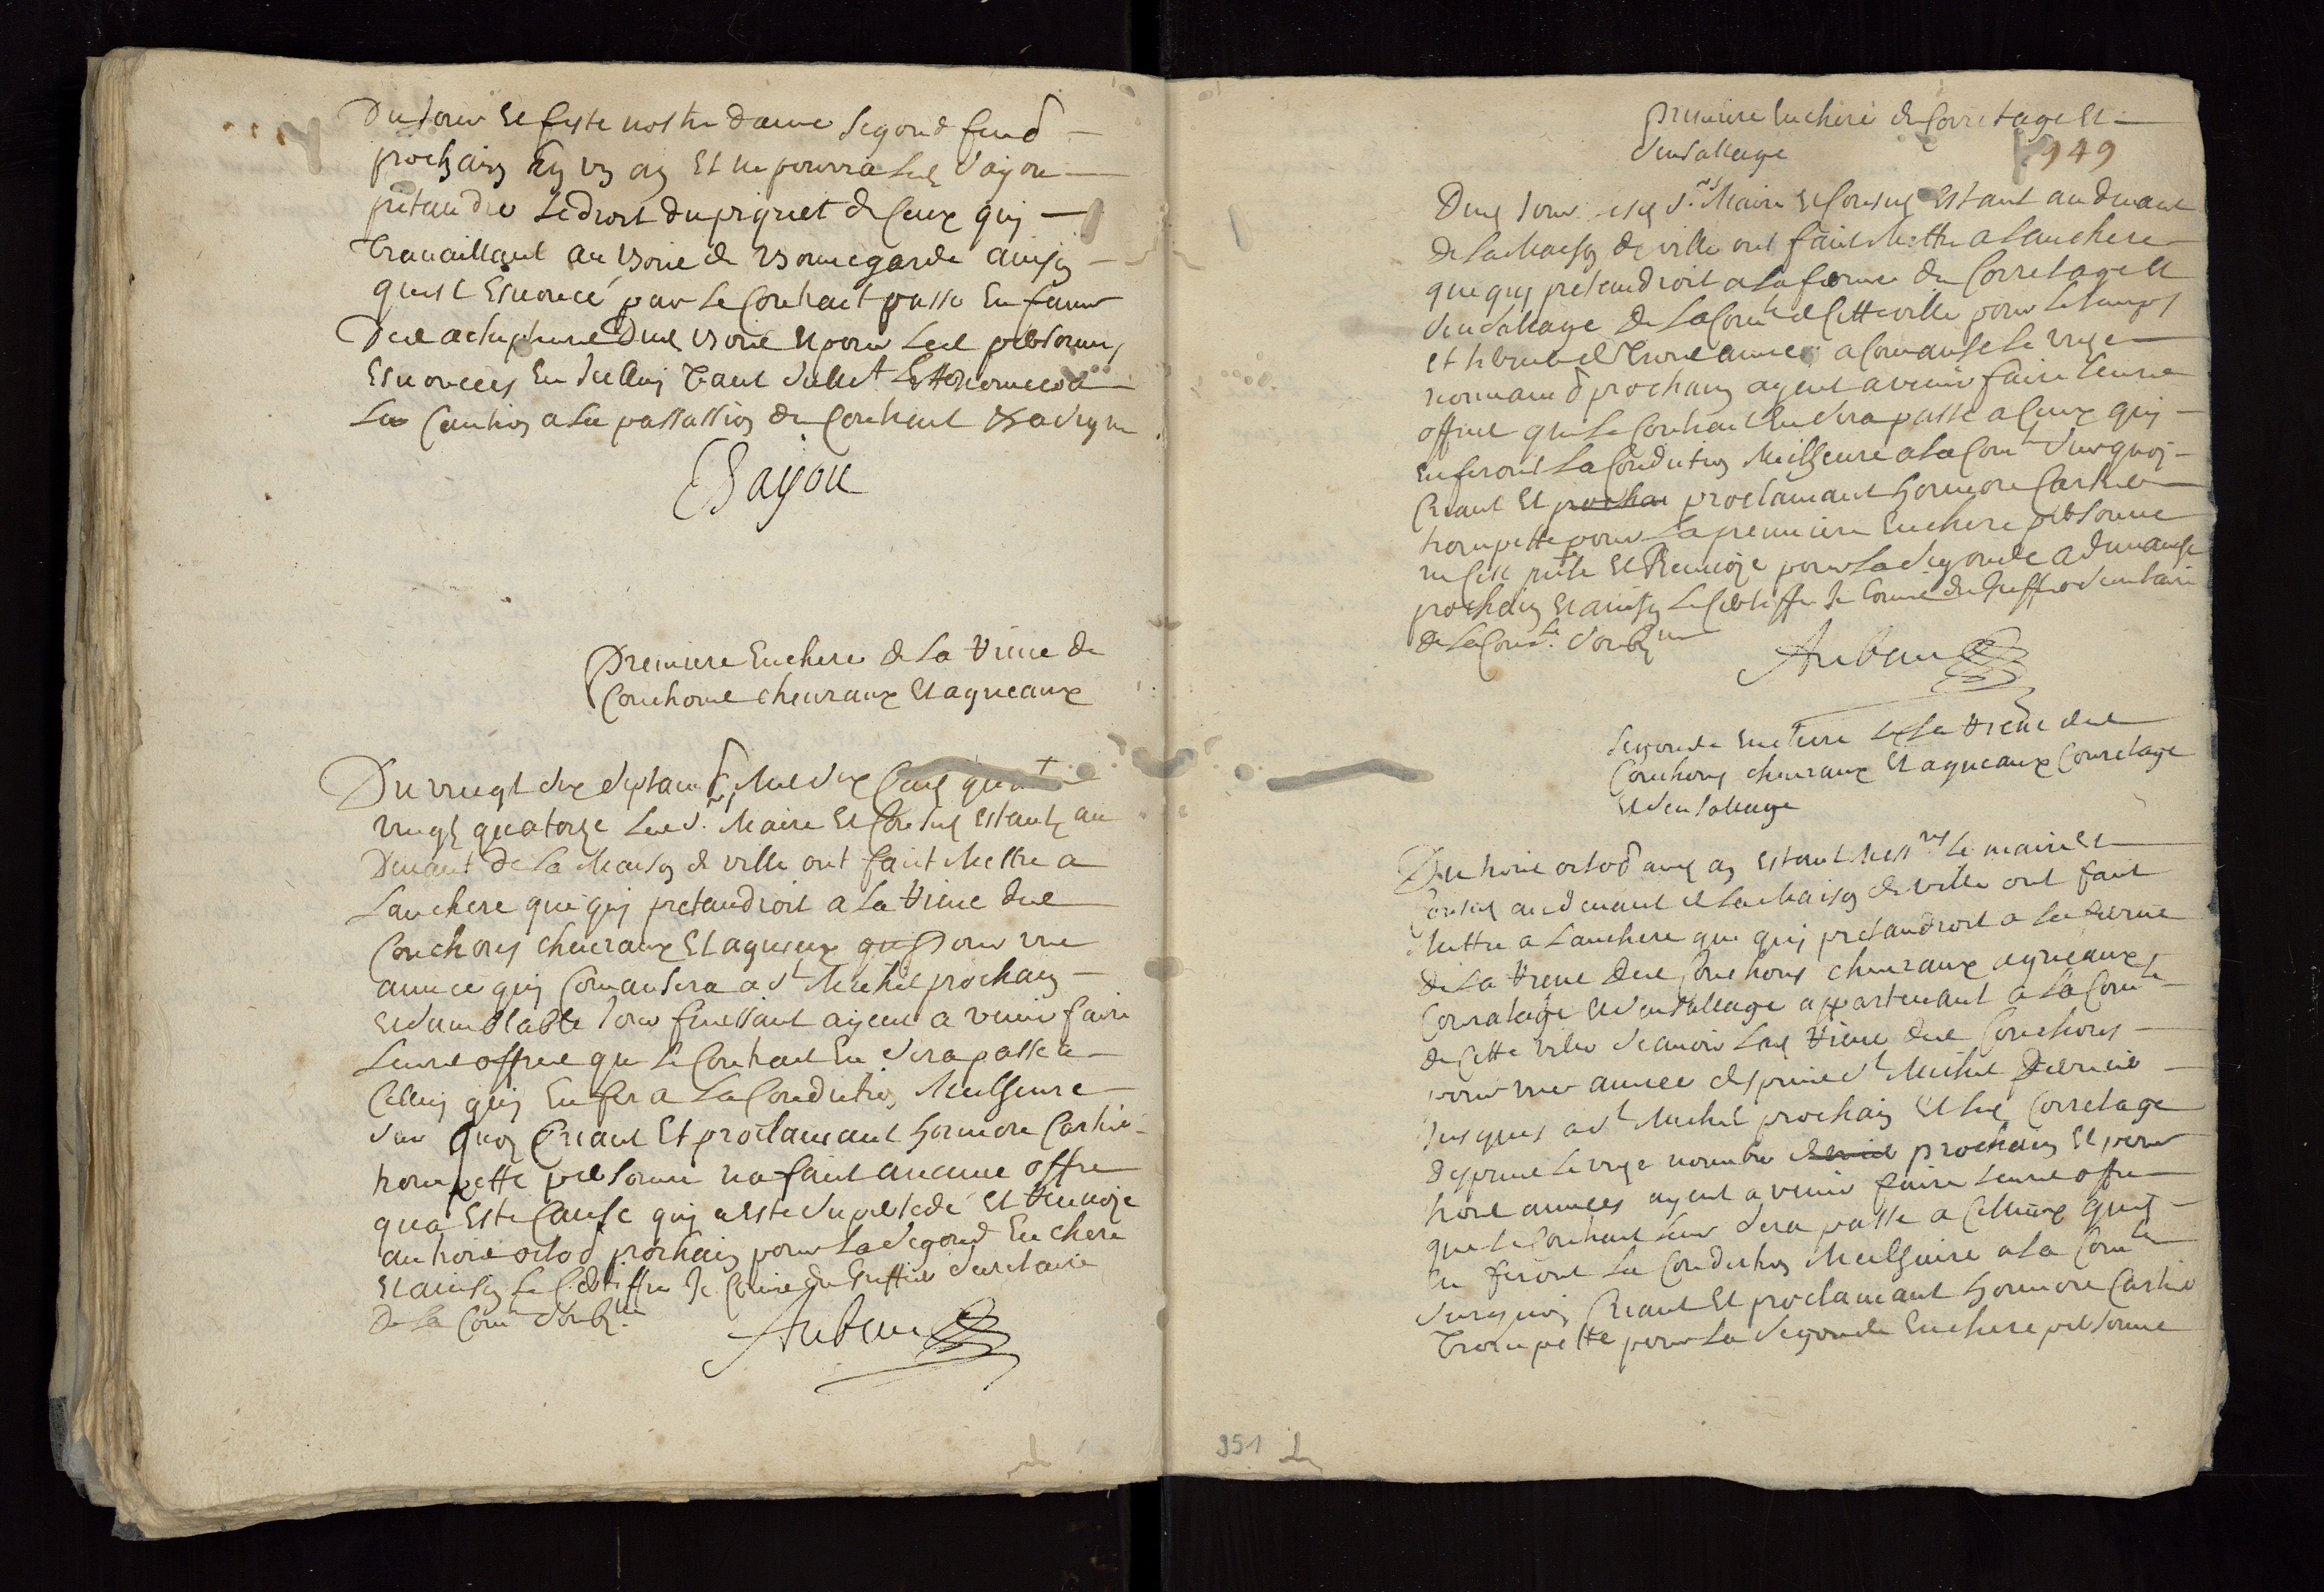 Du Jour et feste nostre dame Segond feud
prochain En un an Et ne pourra led Sajou
pretandre Le droit du piquet de Ceux quy
travaillant au Boue de Bonnegarde ainsy
quest Enoncé par Le Contrait passe En faveur
Enoncees En Icelluy
La Caution a la passassion du Contrait
Bajou
Premiere Enchere de La trieue de
Couchons cheuraux Et agneaux
Du vingt six Septamb Mil six Cens quatre
vingt quatorze Les S.rs Maire Et Consuls Estants au
Deuant de La Maison de ville ont fait Mettre a
Lanchere que quy pretandroit a La trieue des
Couchons cheuraux Et agneaux pour une
annee quy Comansera a St Michel prochain
Et samblable Jour finissant ayent a venir faire
Leurs offres que Le Contrait En Sera passe a
Celluy quy En fera La Condition Meilheure
Sur quoy Criant Et proclamant honnore Cartier
trompette personne na fait aucune offre
qua Este Cause quy a Este Supercede Et Renvoye
au trois octob prochain pour La Segond Enchere
Et ainsin Le Certiffie Je Comis du Greffier Secretaire
De La Com.te Soubz.ne
Auban
premiere Enchere du Corretage Et
Vensallage
949
Dud Jour lesd S.rs Maire Et Consuls Estant au deuant
De La Maison de ville ont fait Mettre a Lanchere
que quy pretandroit a La ferme du Corretage Et
Vensallage De La Com.te de Cette ville pour Le temps
et terme de Trois annees a Comanse Le unze
nouuamb prochain ayent a venir faire Leurs
offres que Le Contrait En Sera passe a Ceux quy
En feront La Condition Meilheure a La Com.te Sur quoy
Criant Et prochai proclamant honnore Cartier
trompette pour La premiere Enchere personne
ne sest pnte Et Renvoye pour La Segonde a dimanche
prochain Et ainsin Le Certiffie Je Comis du Greffier Secretaire
De La Com.te Soubz.ne
Auban
Segonde Enchere de La trieue des
Couchons cheuraux Et agneaux Courretage
Et Vensallage
Du trois octob aud an Estant Mess.rs Le maire Et
Consuls au deuant de La Maison de ville ont fait
Mettre a Lanchere que quy pretandroit a La ferme
De La trieue Des Couchons cheuraux agneaux
Corratage Et Vensallage appartenant a La Com.te
de Cette ville Scauoir Lad trieue des Couchons
pour une annee despuis St Michel Dernier
Jusques a St Michel prochain Et led Corretage
Despuis Le unze nouembre dernier prochain Et pour
trois annees ayent a venir faire Leurs offres
que Le Contrait Leur Sera passe a Ceux quy
En feront La Condition Meilheure a La Com.te
Surquoy Criant Et proclamant honnore Cartier
Trompette pour La Segonde Enchere personne
951